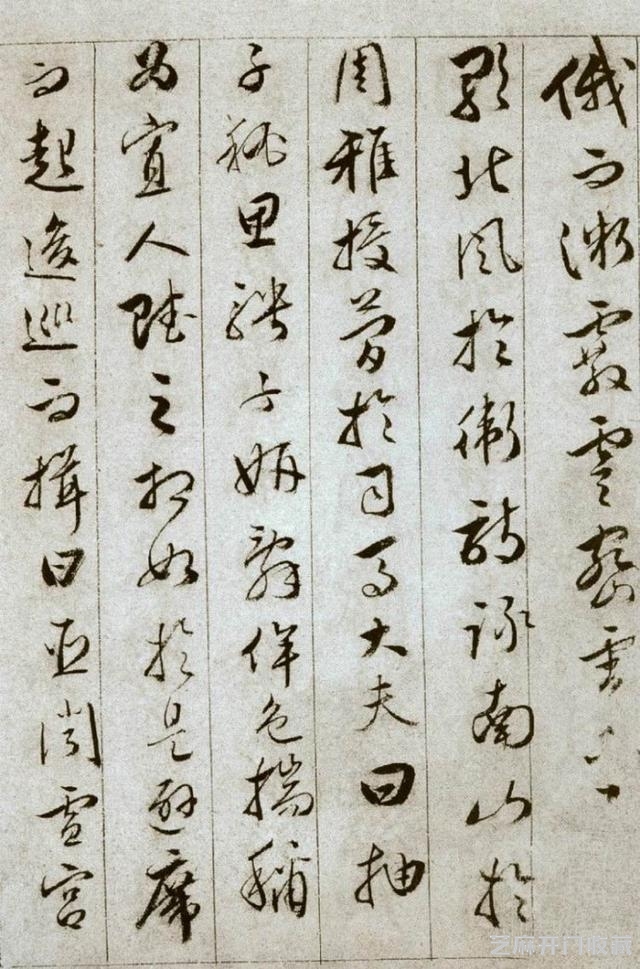 俄而微霰零密雪下
歌北風於衛詩詠南山於
周雅授簡於司馬大夫曰抽
子秘思騁子妍辭侔色揣稱
為寡人賦之相如於是避席
而起逡巡而揖曰臣聞雪宮
芝麻开门收藏